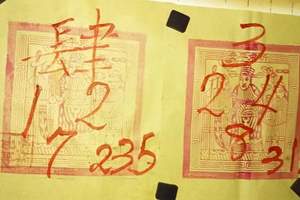 肆
1 2
17 235
3
2 4
8 3